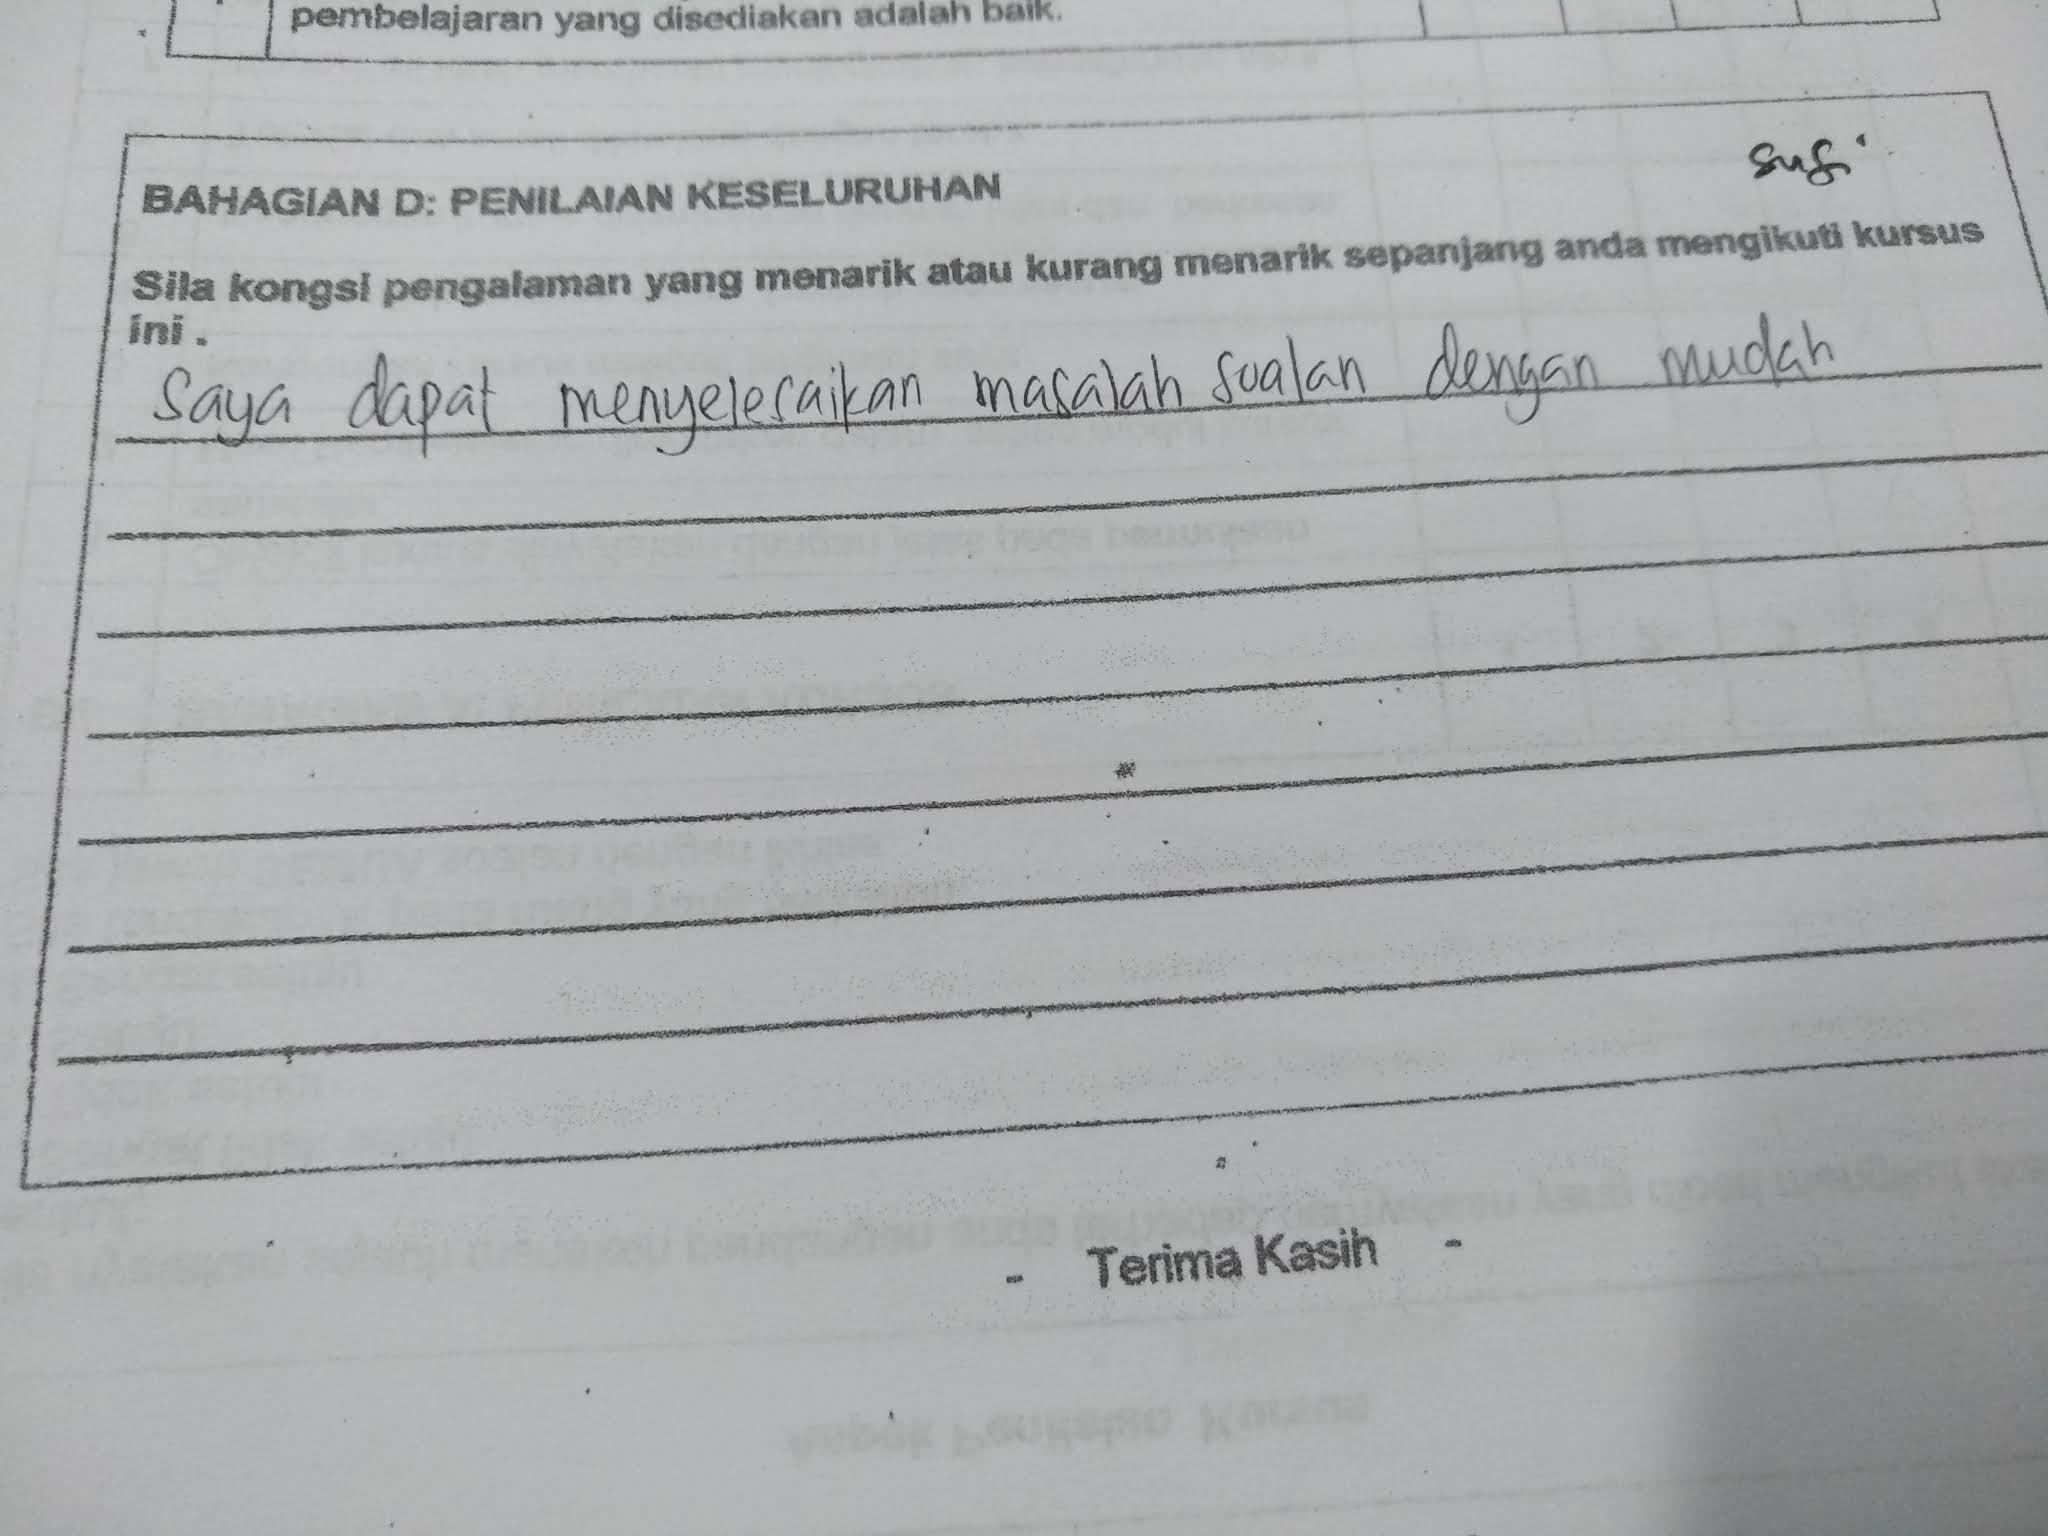 pembelajaran yang disediakan adalah baik.
BAHAGIAN D: PENILAIAN KESELURUHAN
Sila kongsi pengalaman yang menarik atau kurang menarik sepanjang anda mengikuti kursus
ini .
Saya dapat menyelesaikan masalah soalan dengan mudah
- Terima Kasih -